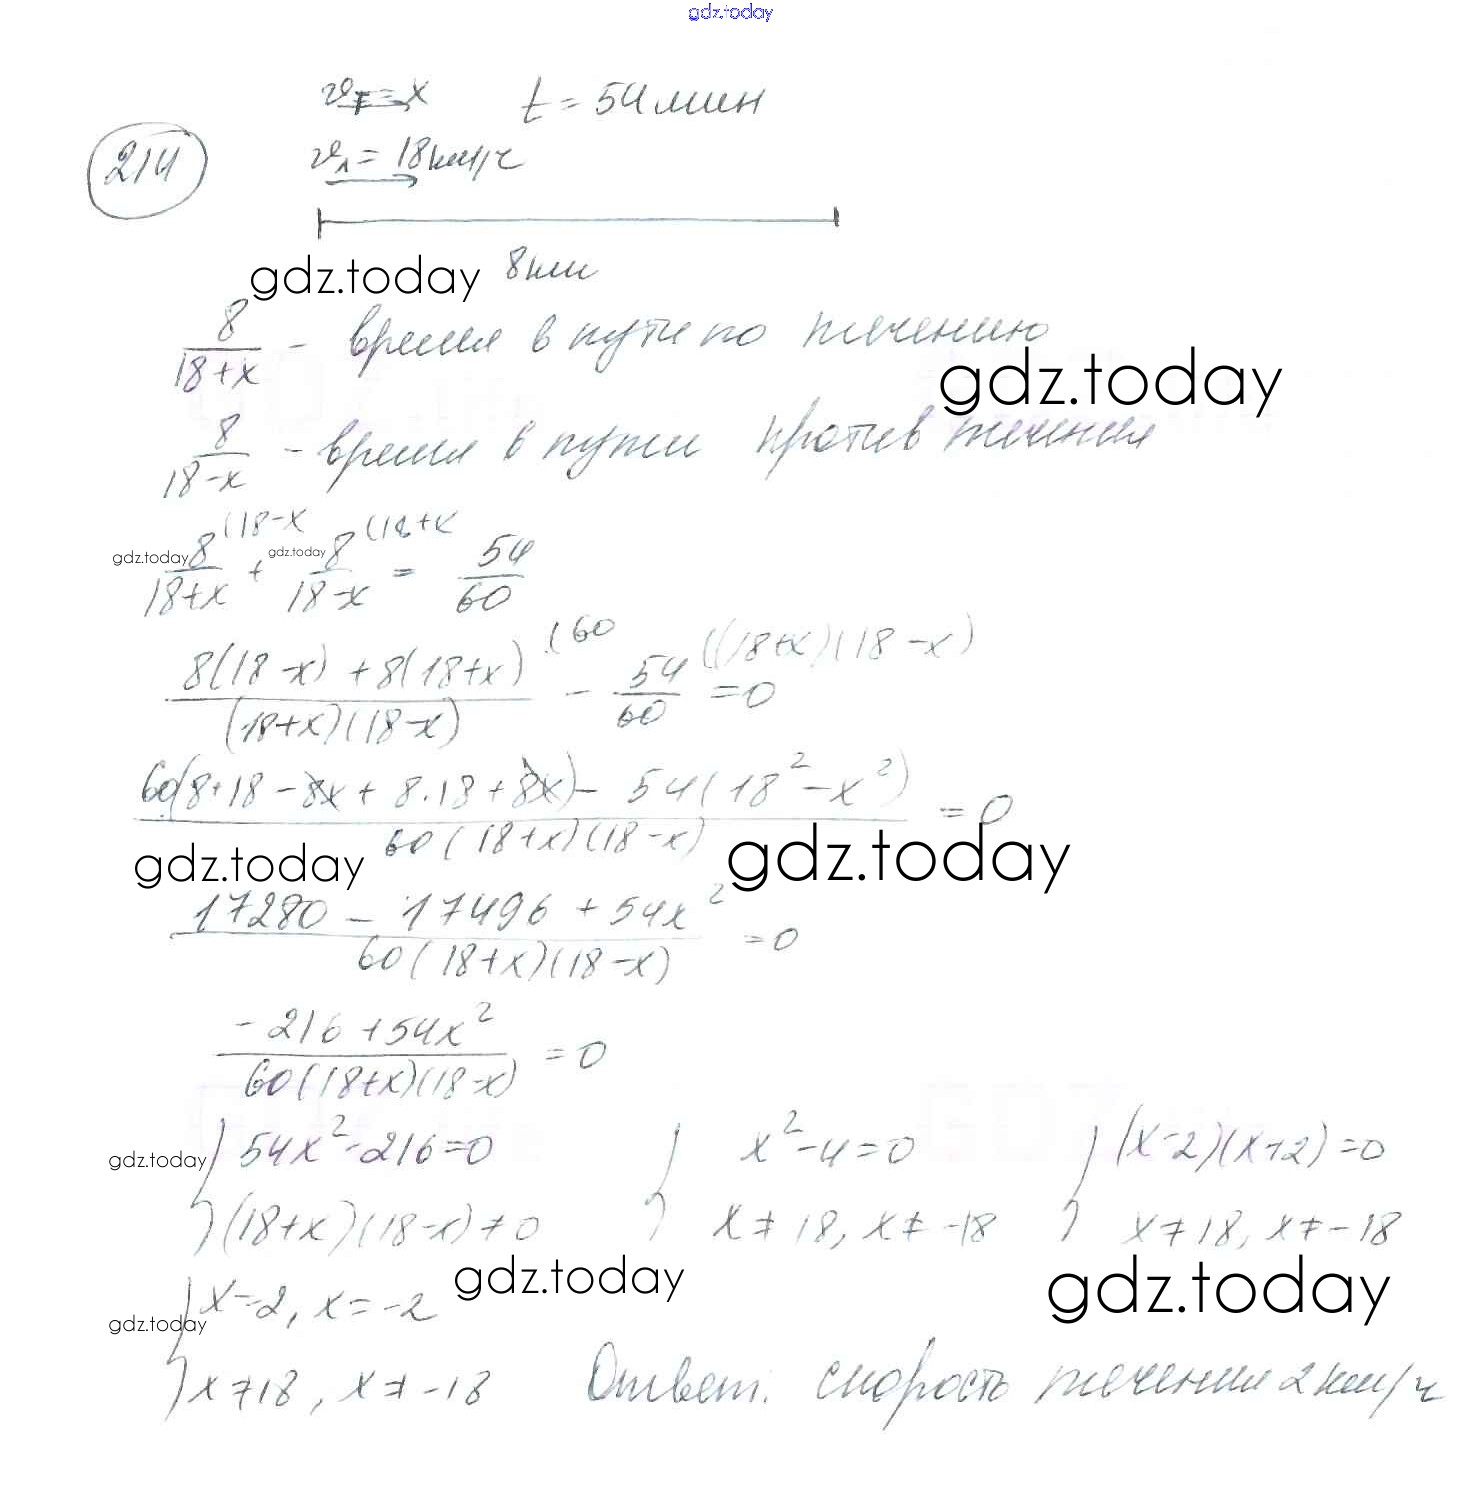 gdz.today
υт = x t = 54 мин
214
υ₁ = 18 км/ч
8 км
gdz.today
8/(18+x) - время в пути по течению
gdz.today
8/(18-x) - время в пути против течения
8/(18+x) (18-x + 8/(18-x) (18+x = 54/60
gdz.today gdz.today
(8(18-x) + 8(18+x))/((18+x)(18-x)) (60 - 54/60 ((18+x)(18-x) = 0
(60(8·18 - 8x + 8·18 + 8x) - 54(18² - x²))/(60(18+x)(18-x)) = 0
gdz.today gdz.today
(17280 - 17496 + 54x²)/(60(18+x)(18-x)) = 0
(-216 + 54x²)/(60(18+x)(18-x)) = 0
gdz.today
{ 54x² - 216 = 0 { x² - 4 = 0 { (x-2)(x+2) = 0
(18+x)(18-x) ≠ 0 x ≠ 18, x ≠ -18 x ≠ 18, x ≠ -18
gdz.today gdz.today
{ x = 2, x = -2
gdz.today
x ≠ 18, x ≠ -18 Ответ: скорость течения 2 км/ч